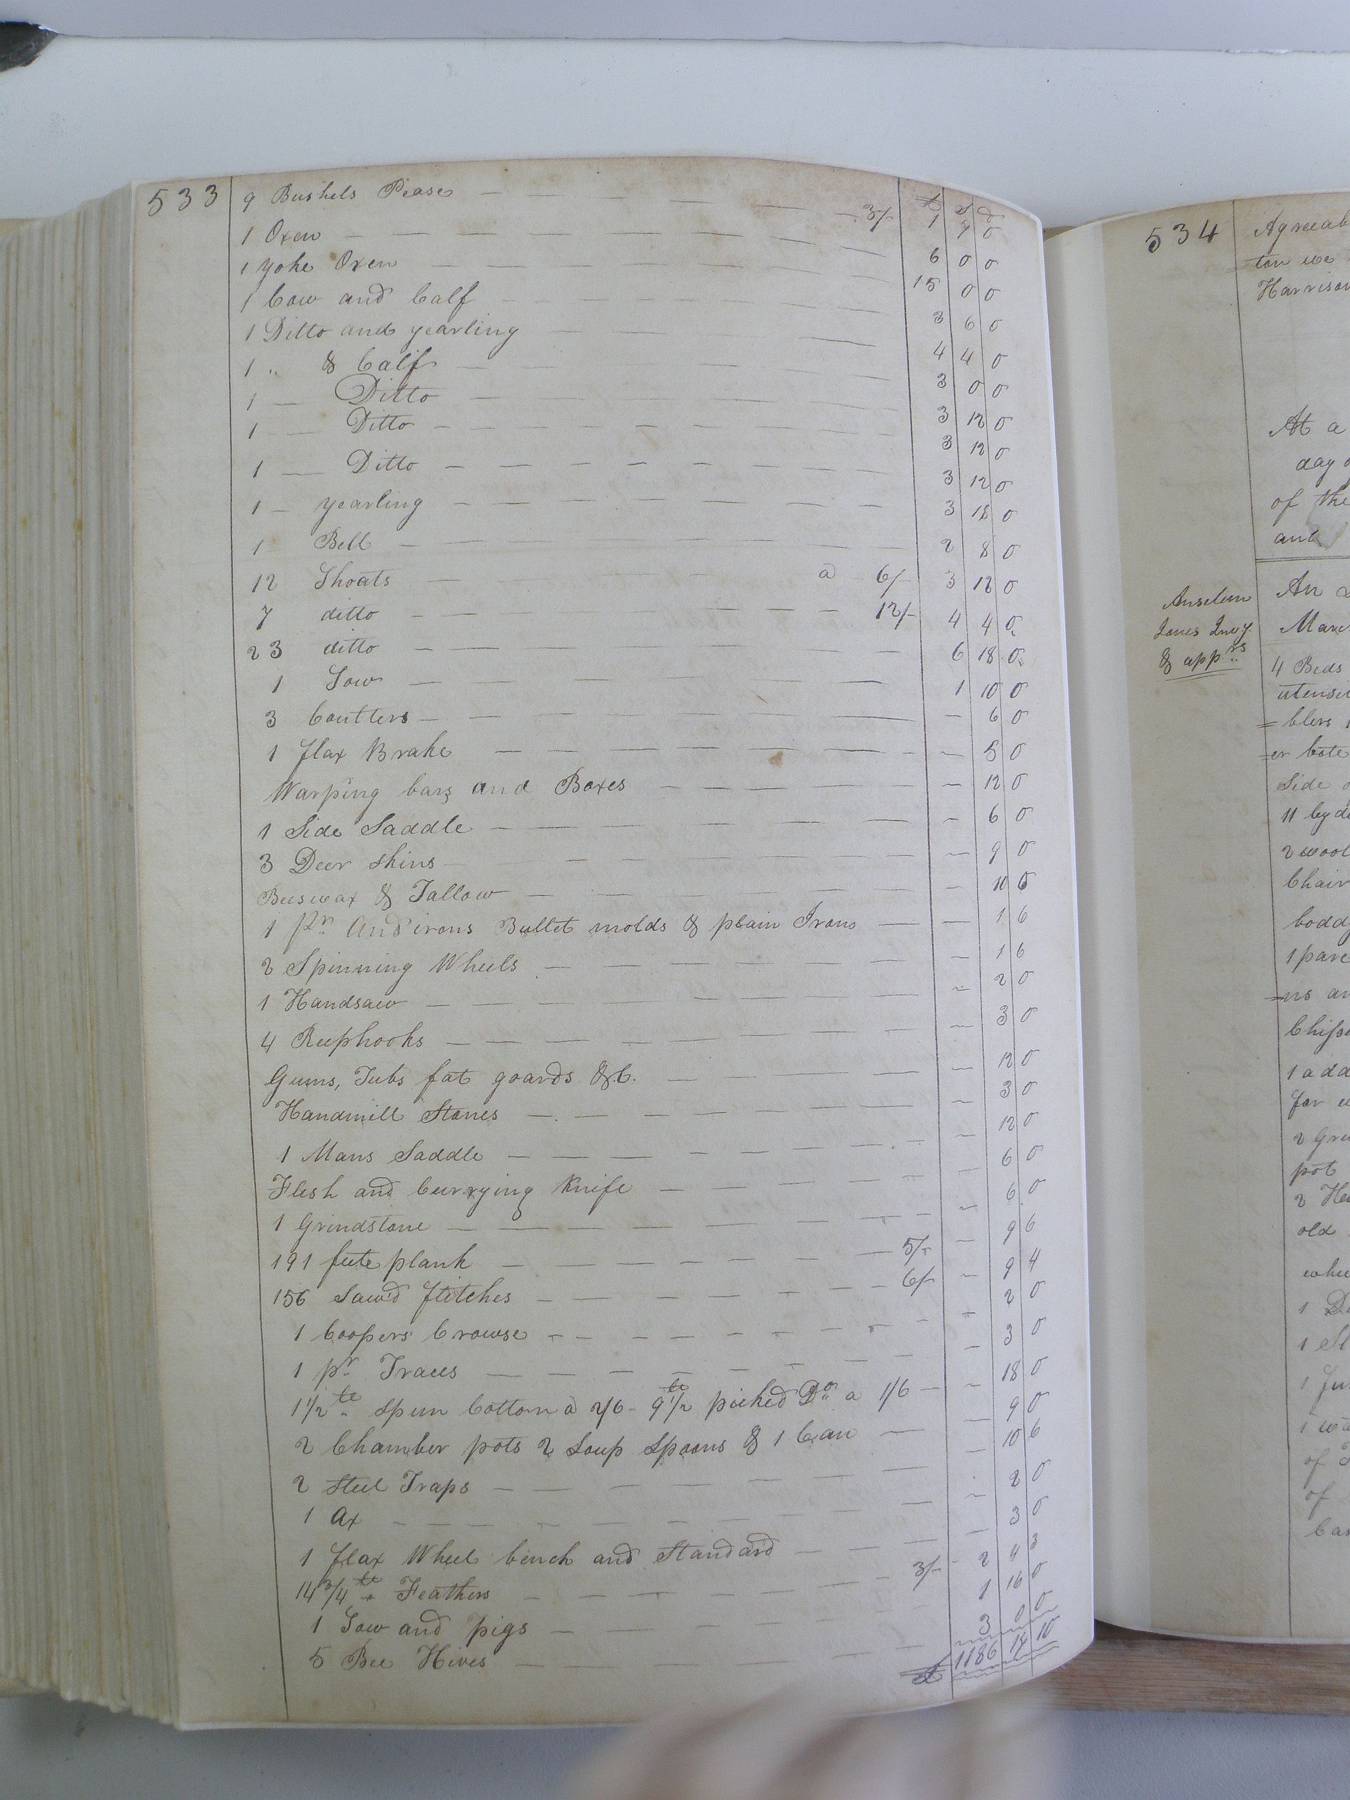 533
£ s d
9 Bushels Pease 3/- 1 7 0
1 Oxen 6 0 0
1 yoke Oxen 15 0 0
1 Cow and Calf 3 6 0
1 Ditto and yearling 4 4 0
1 " & Calf 3 0 0
1 — Ditto 3 12 0
1 — Ditto 3 12 0
1 — Ditto 3 12 0
1 — yearling 3 18 0
1 Bell 2 8 0
12 Shoats a 6/- 3 12 0
7 ditto 12/- 4 4 0
23 ditto 6 18 0
1 Sow 1 10 0
3 Coulters — 6 0
1 flax Brake — 5 0
Warping bars and Boxes — 12 0
1 Side Saddle — 6 0
3 Deer skins — 9 0
Beeswax & Tallow — 10 6
1 Pr. Andirons Bullet molds & plain Irons — 1 6
2 Spinning Wheels — 1 6
1 Handsaw — 2 0
4 Reephooks — 3 0
Gums, Tubs fat goards &C. — 12 0
Handmill Stones — 3 0
1 Mans Saddle — 12 0
Flesh and Currying Knife — 6 0
1 Grindstone — 6 0
191 feete plank 5/- — 9 6
156 Saw'd flitches 6/- — 9 4
1 Coopers Crowse — 2 0
1 pr Traces — 3 0
1 1/2 lb spun Cotton a 2/6 - 9 1/2 lb picked Do a 1/6 — 18 0
2 Chamber pots 2 Soup Spoons & 1 Can — 9 0
2 Steel Traps — 10 6
1 Ax — 2 0
1 flax Wheel bench and Standard — 3 0
14 3/4 lb Feathers 3/- 2 4 3
1 Sow and pigs 1 16 0
5 Bee Hives 3 0 0
£ 1186 14 10
534
Anselem
Jones Invy
& apprs
At a
day
of the
and
An
4 Beds
11
1
2
pot
old
1
1
1
of
of